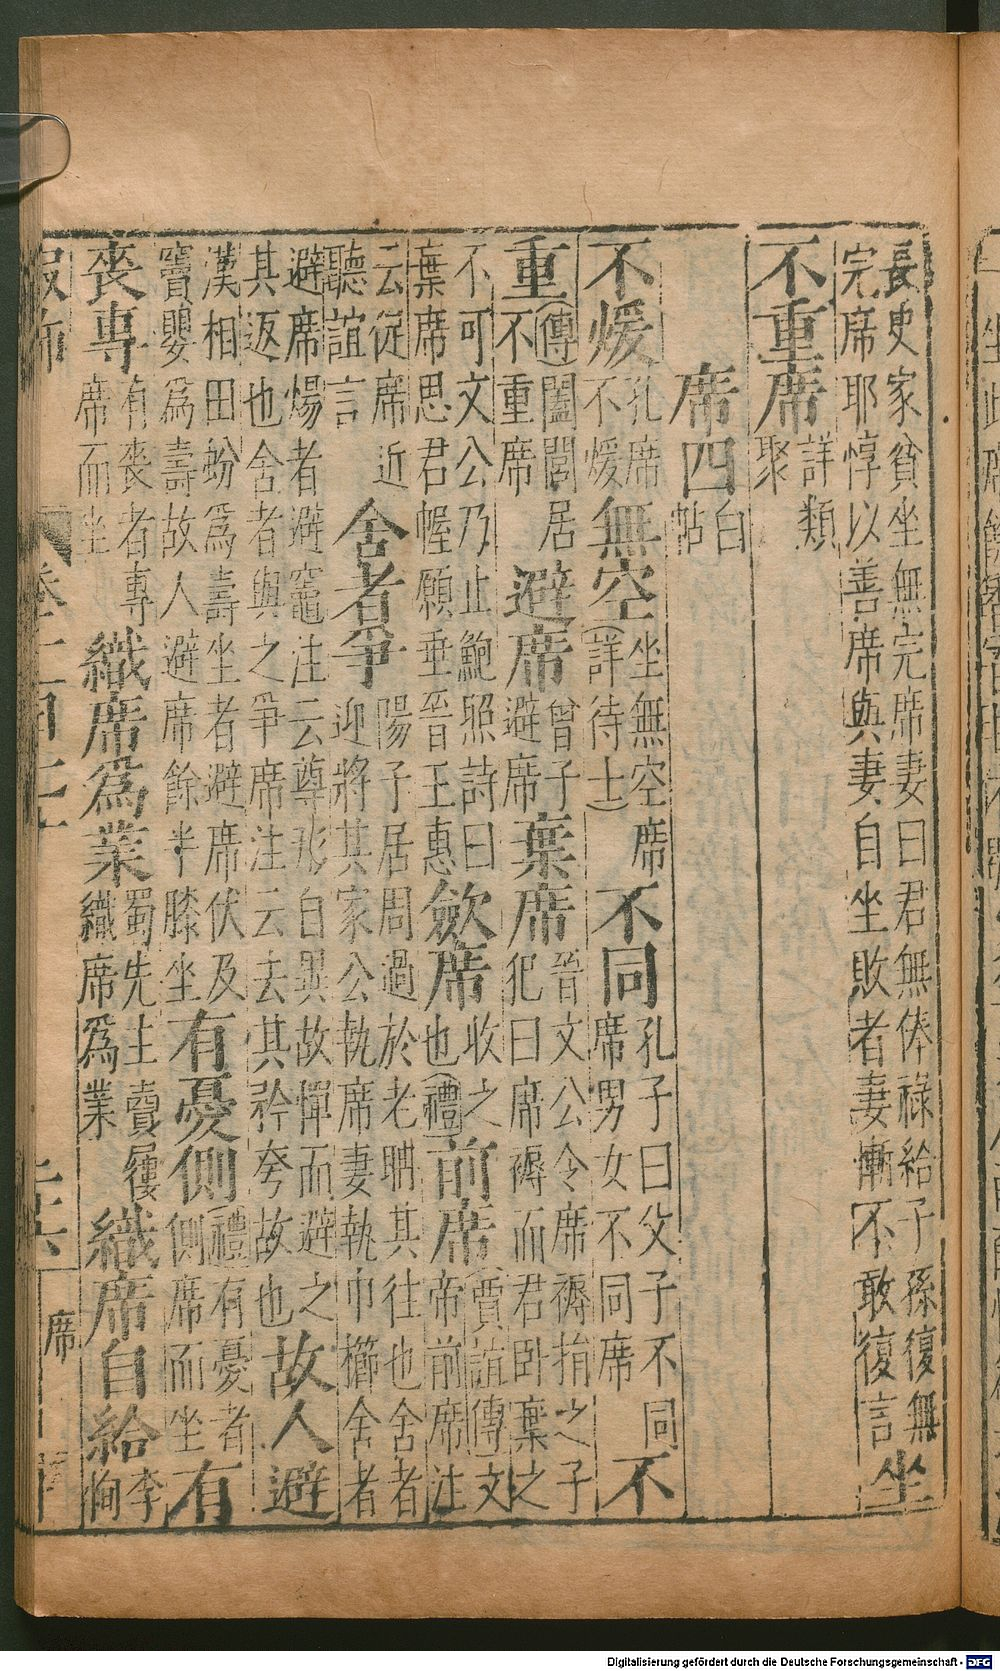 長史家貧坐無完席妻曰君無俸祿給子孫復無
完席耶惇以善席與妻自坐敗者妻慚不敢復言坐
不重席詳類
聚
席四白
帖
不煖孔席
不煖無空坐無空席
詳待士不同孔子曰父子不同
席男女不同席不
重傳闔閭居
不重席避席曾子
避席棄席晉文公令席褥捐之子
犯曰席褥而君卧棄之
不可文公乃止鮑照詩曰
葉席思君幄願垂晉王惠歛席收之
也禮前席賈誼傳文
帝前席注
云促席近
聽誼言舍者爭陽子居周過於老聃其往也舍者
迎將其家公執席妻執巾櫛舍者
避席煬者避竈注云尊形白異故憚而避之
其返也舍者與之爭席注云去其矜夸故也故人避
漢相田蚡爲壽坐者避席伏及
竇嬰爲壽故人避席餘半膝坐有憂側禮有憂者
側席而坐有
喪專有喪者專
席而坐織席爲業蜀先主賣屨
織席爲業織席自給李
恂
席
Digitalisierung gefördert durch die Deutsche Forschungsgemeinschaft - DFG